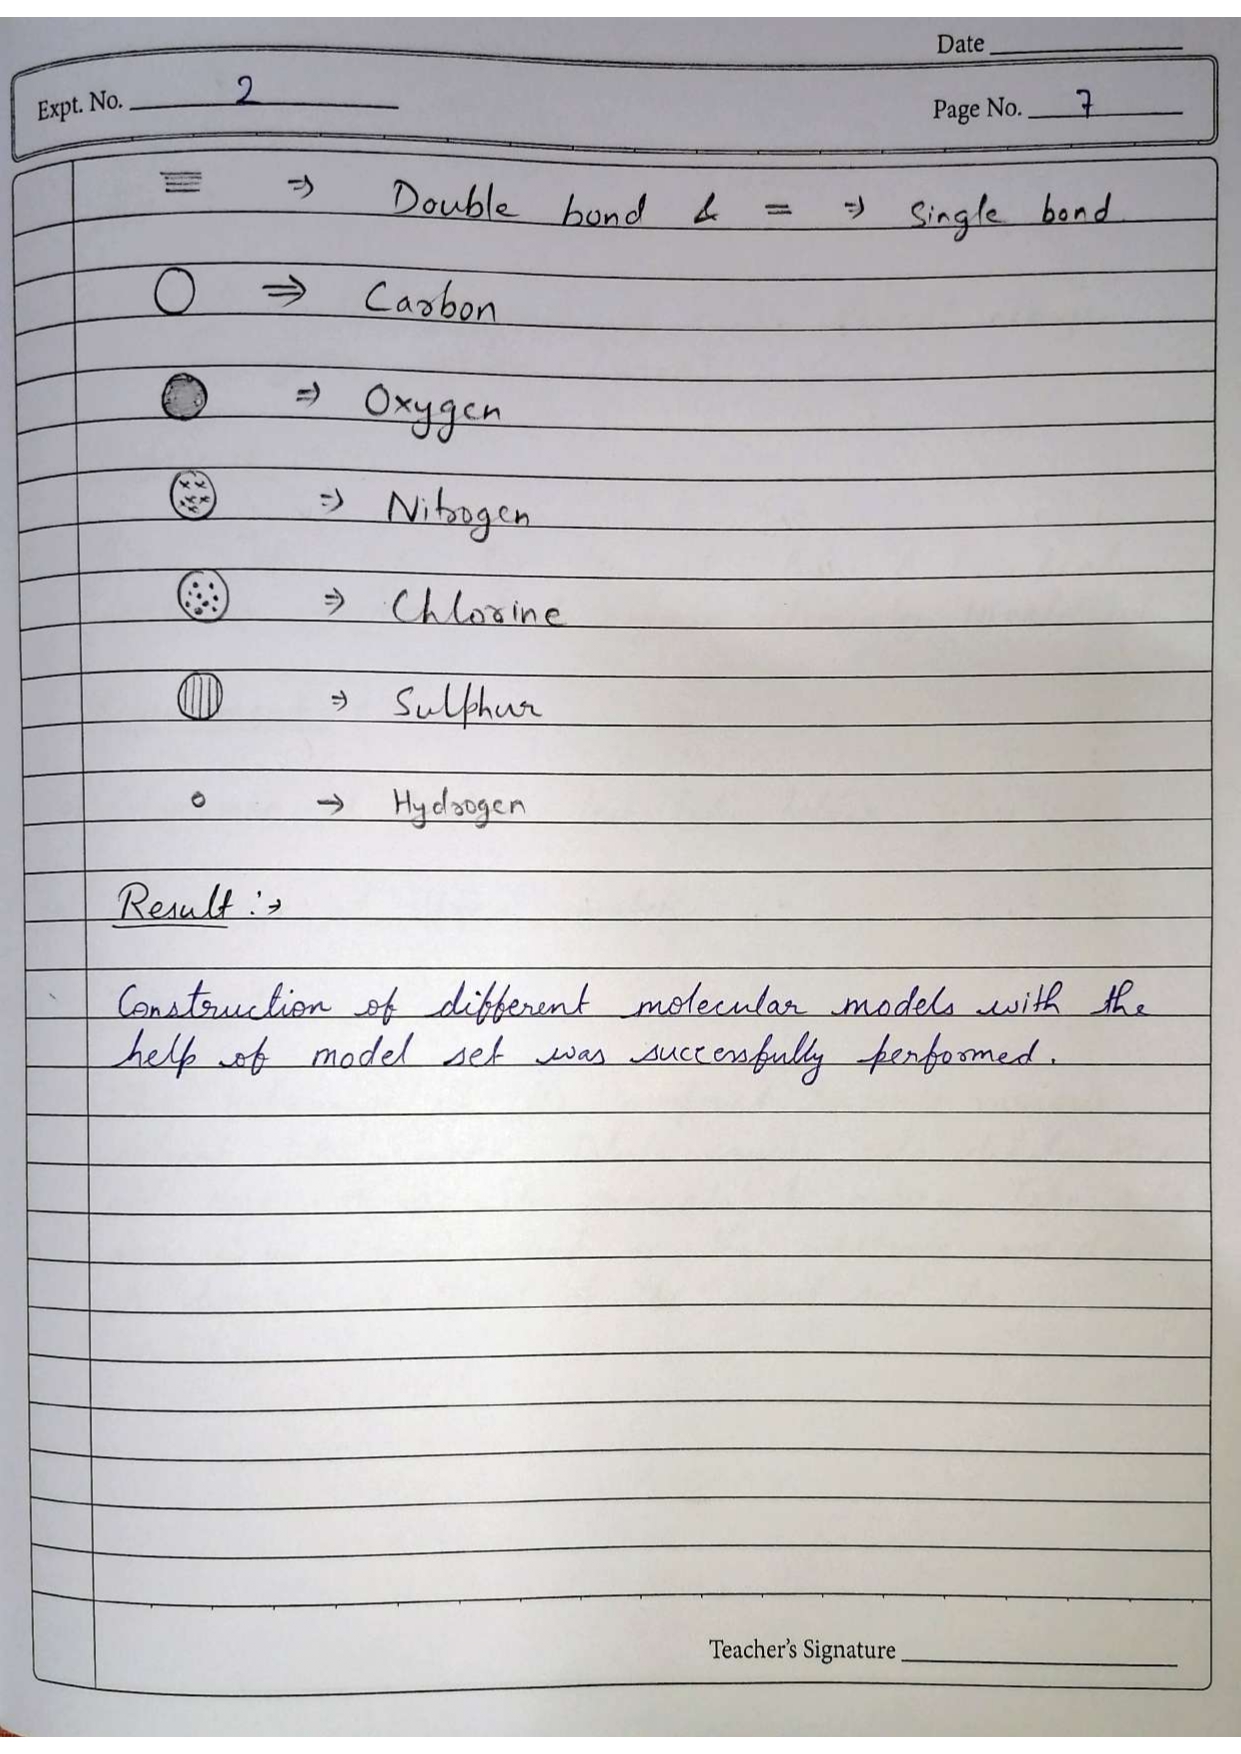 Date
Expt. No. 2
Page No. 7
⇒ Double bond & = ⇒ Single bond
⇒ Carbon
⇒ Oxygen
⇒ Nitrogen
⇒ Chlorine
⇒ Sulphur
→ Hydrogen
Result :→
Construction of different molecular models with the
help of model set was successfully performed.
Teacher's Signature